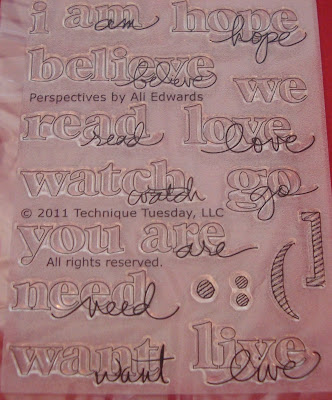 i am am hope hope
believe believe
we
Perspectives by Ali Edwards
read read love love
watch watch go go
© 2011 Technique Tuesday, LLC
you are are
All rights reserved.
need need
want want live live